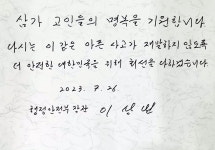 삼가 고인들의 명복을 기원합니다
다시는 이 같은 아픈 사고가 재발하지 않도록
더 안전한 대한민국을 위해 최선을 다하겠습니다
2023. 7. 26.
행정안전부장관 이상민